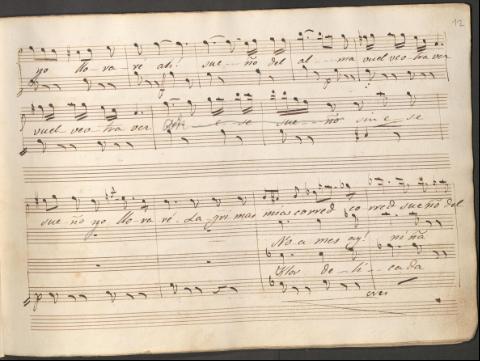 12
yo llo-ra-re ah! sue-ño del al---ma vuel veo-tra ver
vuel-veo-tra ver e-se sue--ño sin e-se
sue-ño yo llo-ra-ré. La-gri-mas mias corred co rred sue ño del
No a mes ay! ni ña
Flor de-li--ca da